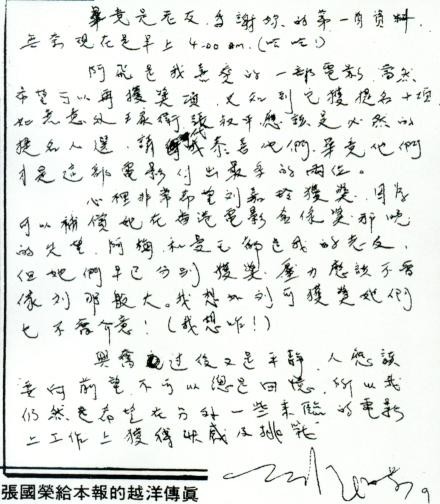 畢竟是老友,多謝妳的第一首資料,
現在是早上 4:00 am. (哈哈!)
阿飛是我喜愛的一部電影,當然
希望可以再獲獎項,又知到它獲提名十項
如無意外王家衛張叔平應該是必然的
提名人選,請代我恭喜他們,畢竟他們
才是這部電影付出最多的兩位。
心裡非常希望刘嘉玲獲獎,因為
可以補償她在香港電影金像獎那晚
的失望,阿梅和曼玉都是我的老友,
但她們早已分別獲獎,壓力應該不會
像刘那般大。我想如刘可獲獎她們
也不會介意!(我想咋!)
興奮過後又是平靜,人應該
要向前望,不可以總是回憶,所以我
仍然是希望在另外一些来臨的電影
上工作上獲得快感及挑戰
張國榮給本報的越洋傳眞